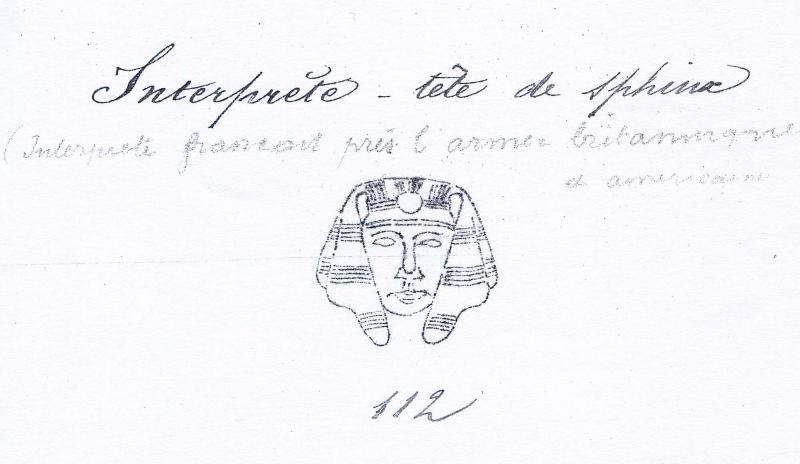 Interprète - tête de sphinx
(Interprete français près l'armée britannique
et américaine
112